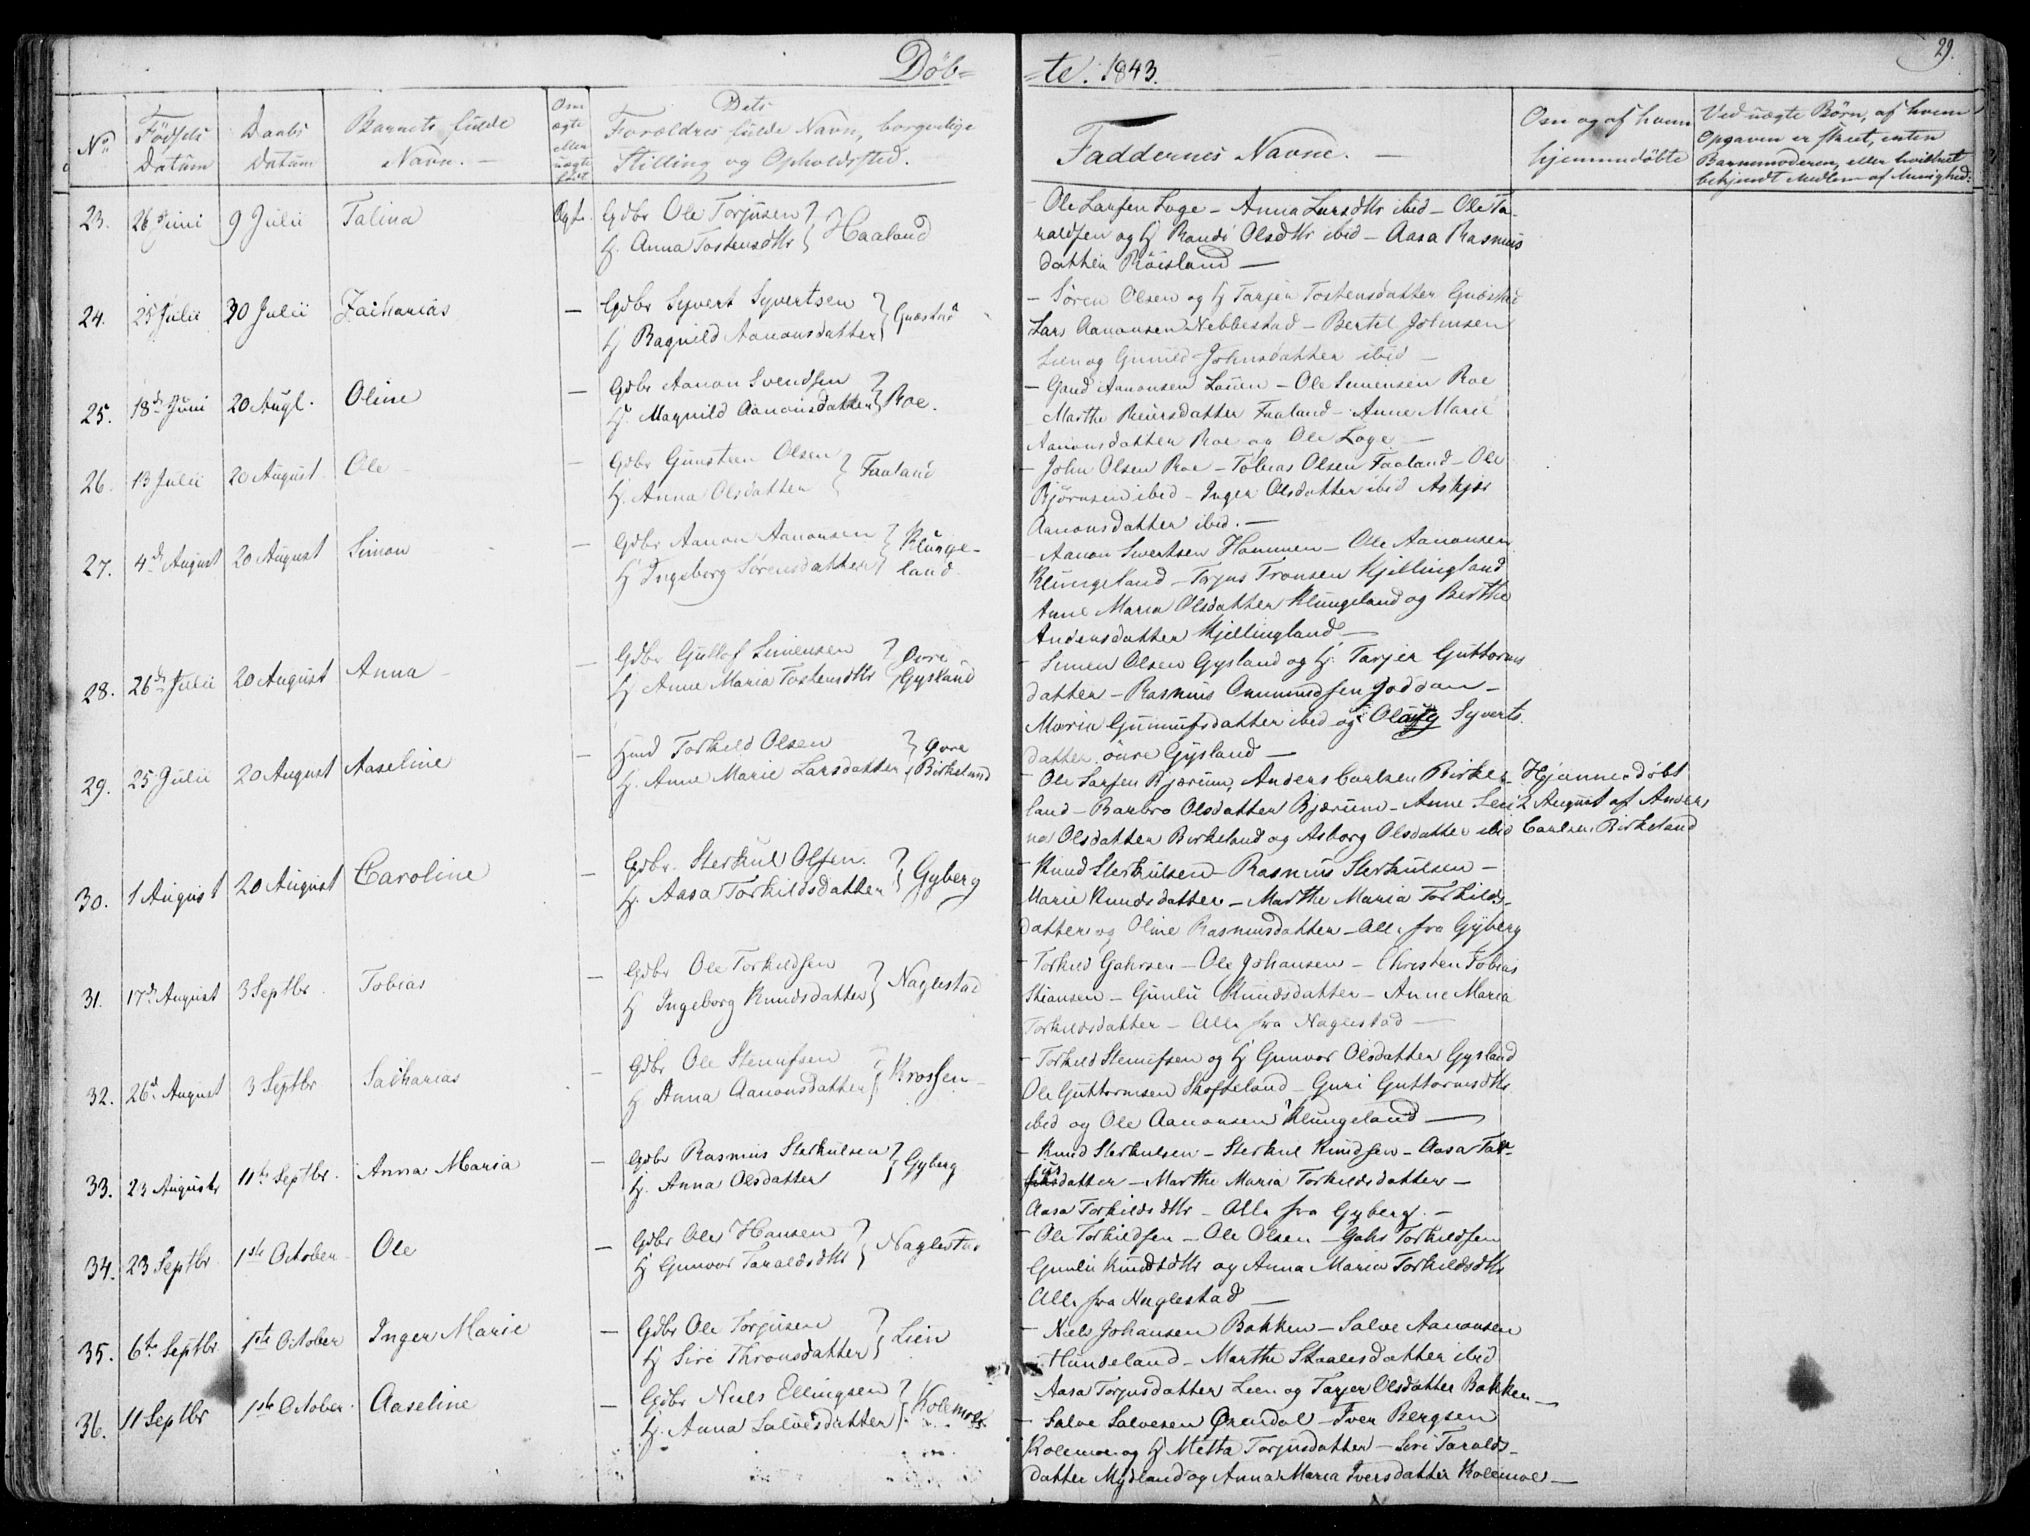 Døb-
te. 1843.
29.
No.
Fødsels Datum
Daabs Datum
Barnets fulde Navn. -
Om ægte eller uægte født
Dets Forældres fulde Navn, borgerlige Stilling og Opholdsted.
Faddernes Navne. -
Om og af hvem hjemmedøbte
Ved uægte Børn, af hvem
Opgaven er skeet, enten
Barnemoderen, eller hvilket
bekjendt Medlem af Menighed.
23. 26 Juni 9 Julii Talina Ægte. Gdbr Ole Torjusen
Hj. Anna Tostensdttr } Haaland
- Ole Larsen Loge - Anna Larsdttr ibid - Ole Ta-
raldsen og Hj Randi Olsdttr ibid - Aasa Rasmus
datter Røisland -
24. 25 Julii 30 Julii Zacharias - Gdbr Syvert Syvertsen
Hj Ragnild Aanonsdatter } Guæstad
- Søren Olsen og Hj Tarjer Tostensdatter Guæstad
Lars Aanonsen Nebbestad - Bertel Johnsen
Lien og Gunild Johnsdatter ibid -
25. 18de Juni 20 Augt. Oline - Gdbr Aanon Svendsen
Hj. Magnild Aanonsdatter } Roe.
- Gaud Aanonsen Lauen - Ole Simensen Roe
Marthe Reiersdatter Faaland - Anne Marie
Aanonsdatter Roe og Ole Loge -
26. 13 Julii 20 August. Ole - Gdbr Gunsteen Olsen
Hj. Anna Olsdatter } Faaland
- John Olsen Roe - Tobias Olsen Faaland - Ole
Bjørnsen ibid - Inger Olsdatter ibid Askjer
Aanonsdatter ibid. -
27. 4de August 20 August Simon - Gdbr Aanon Aanonsen
Hj Ingeborg Sørensdatter } Klunge-
land.
- Aanon Sivertsen Hommen - Ole Aanonsen
Klungeland - Torjus Tronsen Kjellingland
Anne Maria Olsdatter Klungeland og Berthe
Andersdatter Kjellingland -
28. 26de Julii 20 August Anna - Gdbr Gullof Simensen
Hj Anne Maria Tostensdttr } Øvre
Gysland
- Simen Olsen Gysland og Hj. Tarjer Guttorms
datter - Rasmus Ommundsen Joddan -
Maria Gunnufsdatter ibid og Olaug Syverts
datter øvre Gysland -
29. 25 Julii 20 August Aaseline - Hmd Torkild Olsen
Hj. Anne Marie Larsdatter } Øvre
Birkeland
- Ole Larsen Bjærum, Anders Carlsen Birke-
land - Barbro Olsdatter Bjærum - Anne Seri
na Olsdatter Birkeland og Asborg Olsdatter ibid
Hjemmedøbt
2 August af Anders
Carlsen Birkeland
30. 1 August 20 August Caroline - Gdbr. Sterkul Olsen.
Hj. Aasa Torkildsdatter } Gyberg
- Knud Sterkulsen - Rasmus Sterkulsen -
Marie Knudsdatter - Marthe Maria Torkilds-
datter og Oline Rasmusdatter - Alle fra Gyberg
31. 17de August 3 Septbr. Tobias - Gdbr Ole Torkildsen
Hj Ingeborg Knudsdatter } Naglestad
- Torkild Gahrsen - Ole Johansen - Christen Tobias
Stiansen - Gunlu Knudsdatter - Anne Maria
Torkildsdatter - Alle fra Naglestad -
32. 26d August 3 Septbr Sacharias - Gdbr Ole Stenufsen
Hj Anna Aanonsdatter } Krossen -
- Torkild Stenufsen og Hj Gunvor Olsdatter Gysland
Ole Guttormsen Skofteland - Guri Guttormsdttr
ibid og Ole Aanonsen Klungeland -
33. 23 August 11te Septbr. Anna Maria - Gdbr Rasmus Sterkulsen
Hj. Anna Olsdatter } Gyberg
- Knud Sterkulsen - Sterkul Knudsen - Aasa Tol-
datter - Marthe Maria Torkildsdatter -
Aasa Torkildsdttr - Alle fra Gyberg. -
34. 23 Septbr 1ste October Ole - Gdbr Ole Hansen
Hj Gunvor Taraldsdttr } Naglestad
- Ole Torkildsen - Ole Olsen - Gahr Torkildsen
Gunlu Knudsdttr og Anna Maria Torkildsdttr
Alle fra Naglestad -
35. 6te Septbr 1ste October Inger Marie - Gdbr Ole Torjusen
Hj Siri Thronsdatter } Lien
- Niels Johansen Bakken - Salve Aanonsen
Hundeland - Marthe Staalesdatter ibid
Aasa Torjusdatter Lien og Tarjer Olsdatter Bakken -
36. 11 Septbr 1ste October. Aaseline - Gdbr Niels Ellingsen
Hj. Anna Salvesdatter } Kolemoe
- Salve Salvesen Ørendal - Iver Bergsen
Kolemoe og Hj Metta Torjusdatter - Siri Taralds-
datter Mydland og Anna Maria Iversdatter Kolemoe -